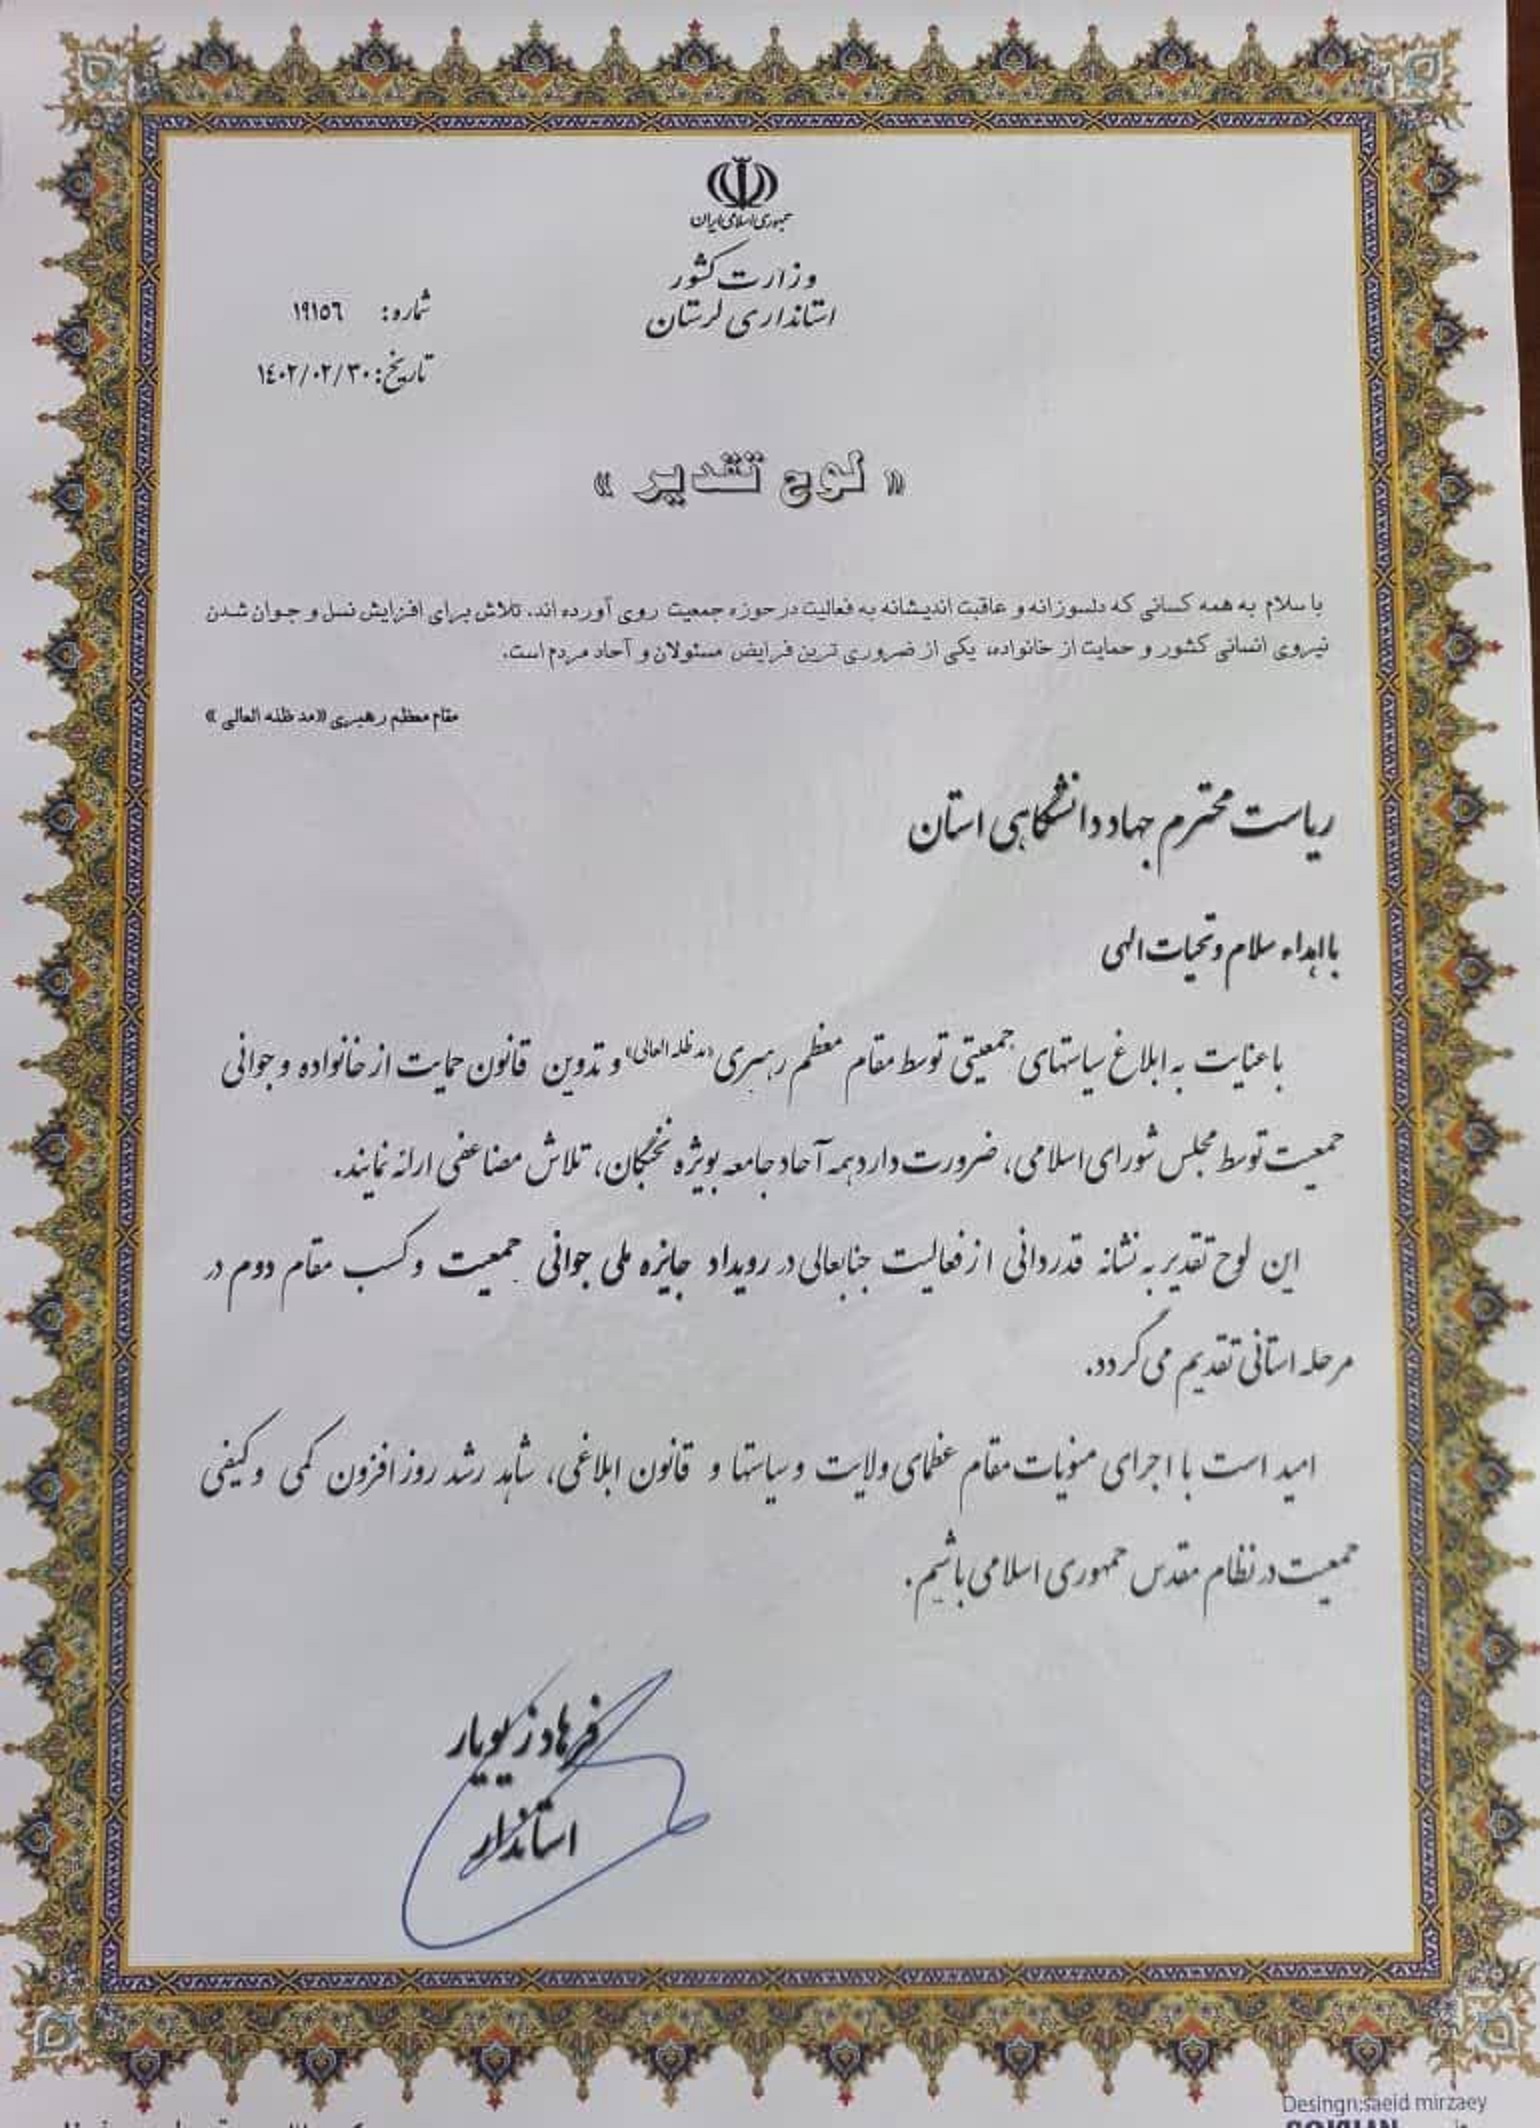 جمهوری اسلامی ایران
وزارت کشور
استانداری لرستان
شماره: ۱۹۱۵۶
تاریخ: ۱۴۰۲/۰۲/۳۰
« لوح تقدیر »
با سلام به همه کسانی که دلسوزانه و عاقبت اندیشانه به فعالیت در حوزه جمعیت روی آورده اند، تلاش برای افزایش نسل و جوان شدن
نیروی انسانی کشور و حمایت از خانواده، یکی از ضروری ترین فرایض مسئولان و آحاد مردم است.
مقام معظم رهبری «مد ظله العالی»
ریاست محترم جهاد دانشگاهی استان
با اهداء سلام و تحیات الهی
با عنایت به ابلاغ سیاستهای جمعیتی توسط مقام معظم رهبری «مد ظله العالی» و تدوین قانون حمایت از خانواده و جوانی
جمعیت توسط مجلس شورای اسلامی، ضرورت دارد همه آحاد جامعه بویژه نخبگان، تلاش مضاعفی ارائه نمایند.
این لوح تقدیر به نشانه قدردانی از فعالیت جنابعالی در رویداد جایزه ملی جوانی جمعیت و کسب مقام دوم در
مرحله استانی تقدیم می گردد.
امید است با اجرای منویات مقام عظمای ولایت و سیاستها و قانون ابلاغی، شاهد رشد روز افزون کمی و کیفی
جمعیت در نظام مقدس جمهوری اسلامی باشیم.
فرهاد زیویار
استاندار
Desingn:saeid mirzaey